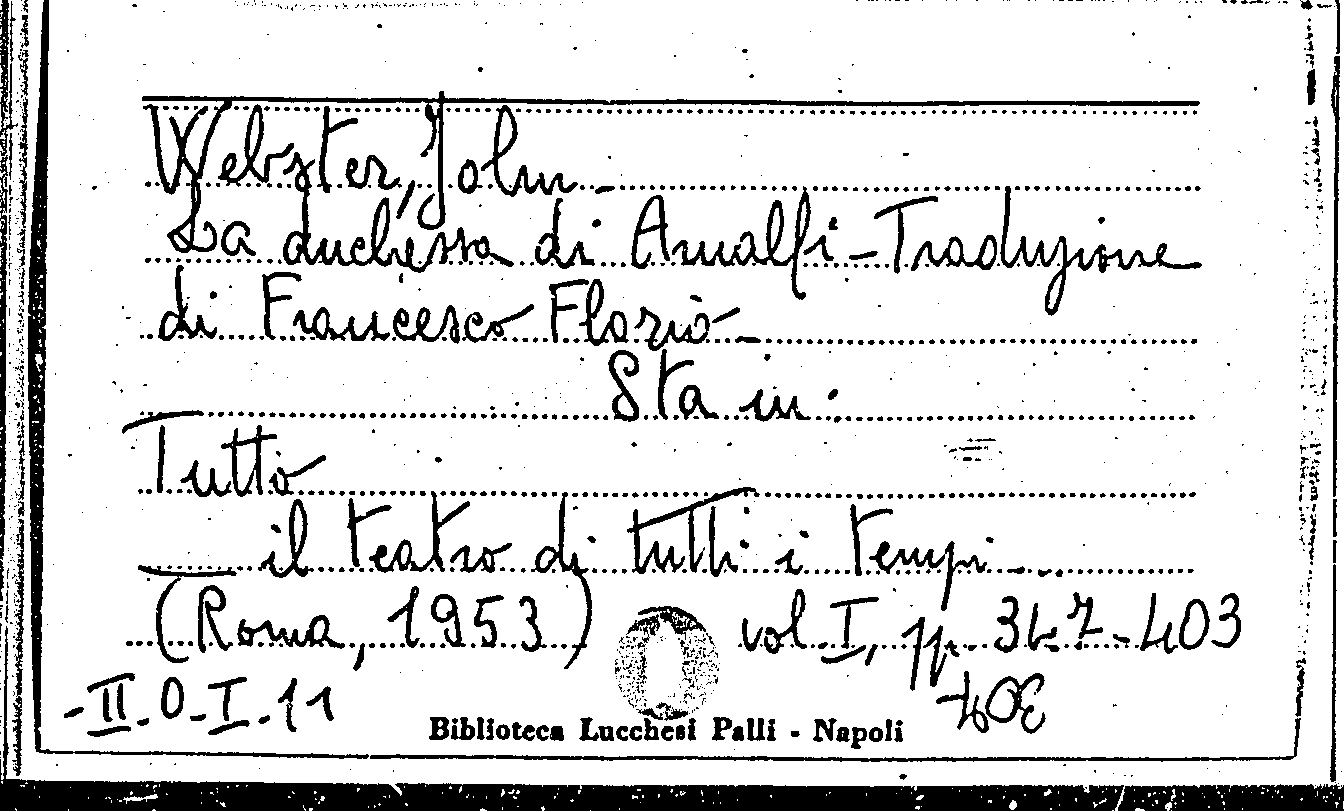 Webster, John -
La duchessa di Amalfi - Traduzione
di Francesco Florio -
Sta in:
Tutto
il teatro di tutti i tempi ...
(Roma, 1953) vol. I, pp. 347-403
-II-0-I-11
Biblioteca Lucchesi Palli - Napoli